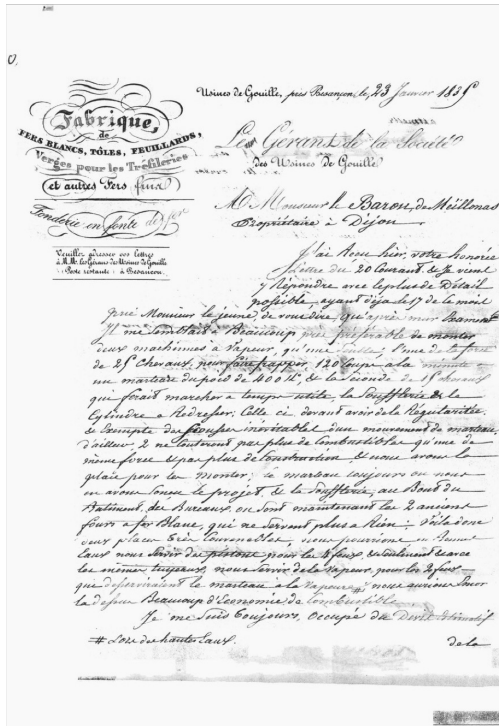 Usines de Gouille, près Besançon, le, 23 Janvier 1835
Fabrique,
de
FERS BLANCS, TÔLES, FEUILLARDS,
Verges pour les Tréfileries
et autres Fers fins
Fonderie en fonte de fer
Veuillez adresser vos lettres
à M.M. les Gérans des Usines de Gouille
Poste restante à Besancon.
Les Gérans de la Société
des Usines de Gouille
A Monsieur le Baron, de Meillonas
Propriétaire à Dijon
J'ai Recu hier, votre honorée
Lettre du 20 Courant & Je vient
y Répondre avec le plus de Détail
possible, ayant déja le 17 de le moil
prié Monsieur le jeune, de vous dire, qu'après mur Examen
Il me semblait Beaucoup près préférable de monter
deux machines à Vapeur, qu'une seule, l'une de la force
de 25 Chevaux, pour faire frapper 120 Coups à la minute
un marteau du poid de 400 K, & la seconde de 15 chevaux
qui ferait marcher a temps utile, la Soufflerie & le
Cylindre a Redresser; Celle ci devant avoir de la Régularitée
& Exempte des secousses inévitables d'un mouvement de marteau,
d'ailleur 2 ne Coutront pas plus de Combustible qu'une de
même force & pas plus de Construction & nous avons la
place pour les monter; le marteau toujours ou nous
en avons Concu le projet, & la Soufflerie, au Bout du
Batiment, des Bureaux, ou sont maintenant les 2 ancient
fours a fer Blanc, qui ne servent plus a Rien. Voila donc
deux places très Convenables, nous pourrions en Bonnes
Eaux nous servir du pistons pour les 4 feux, & seulement avec
les même tuyeaux, nous servir de la Vapeur, pour les 2 feux
que desserviraient le marteau à la Vapeur # nous aurions Encor
la dessus Beaucoup d'Economie de Combustible.
Je me suis toujours, occupée du Devis Estimatif
# Lors des hautes Eaux.
de la